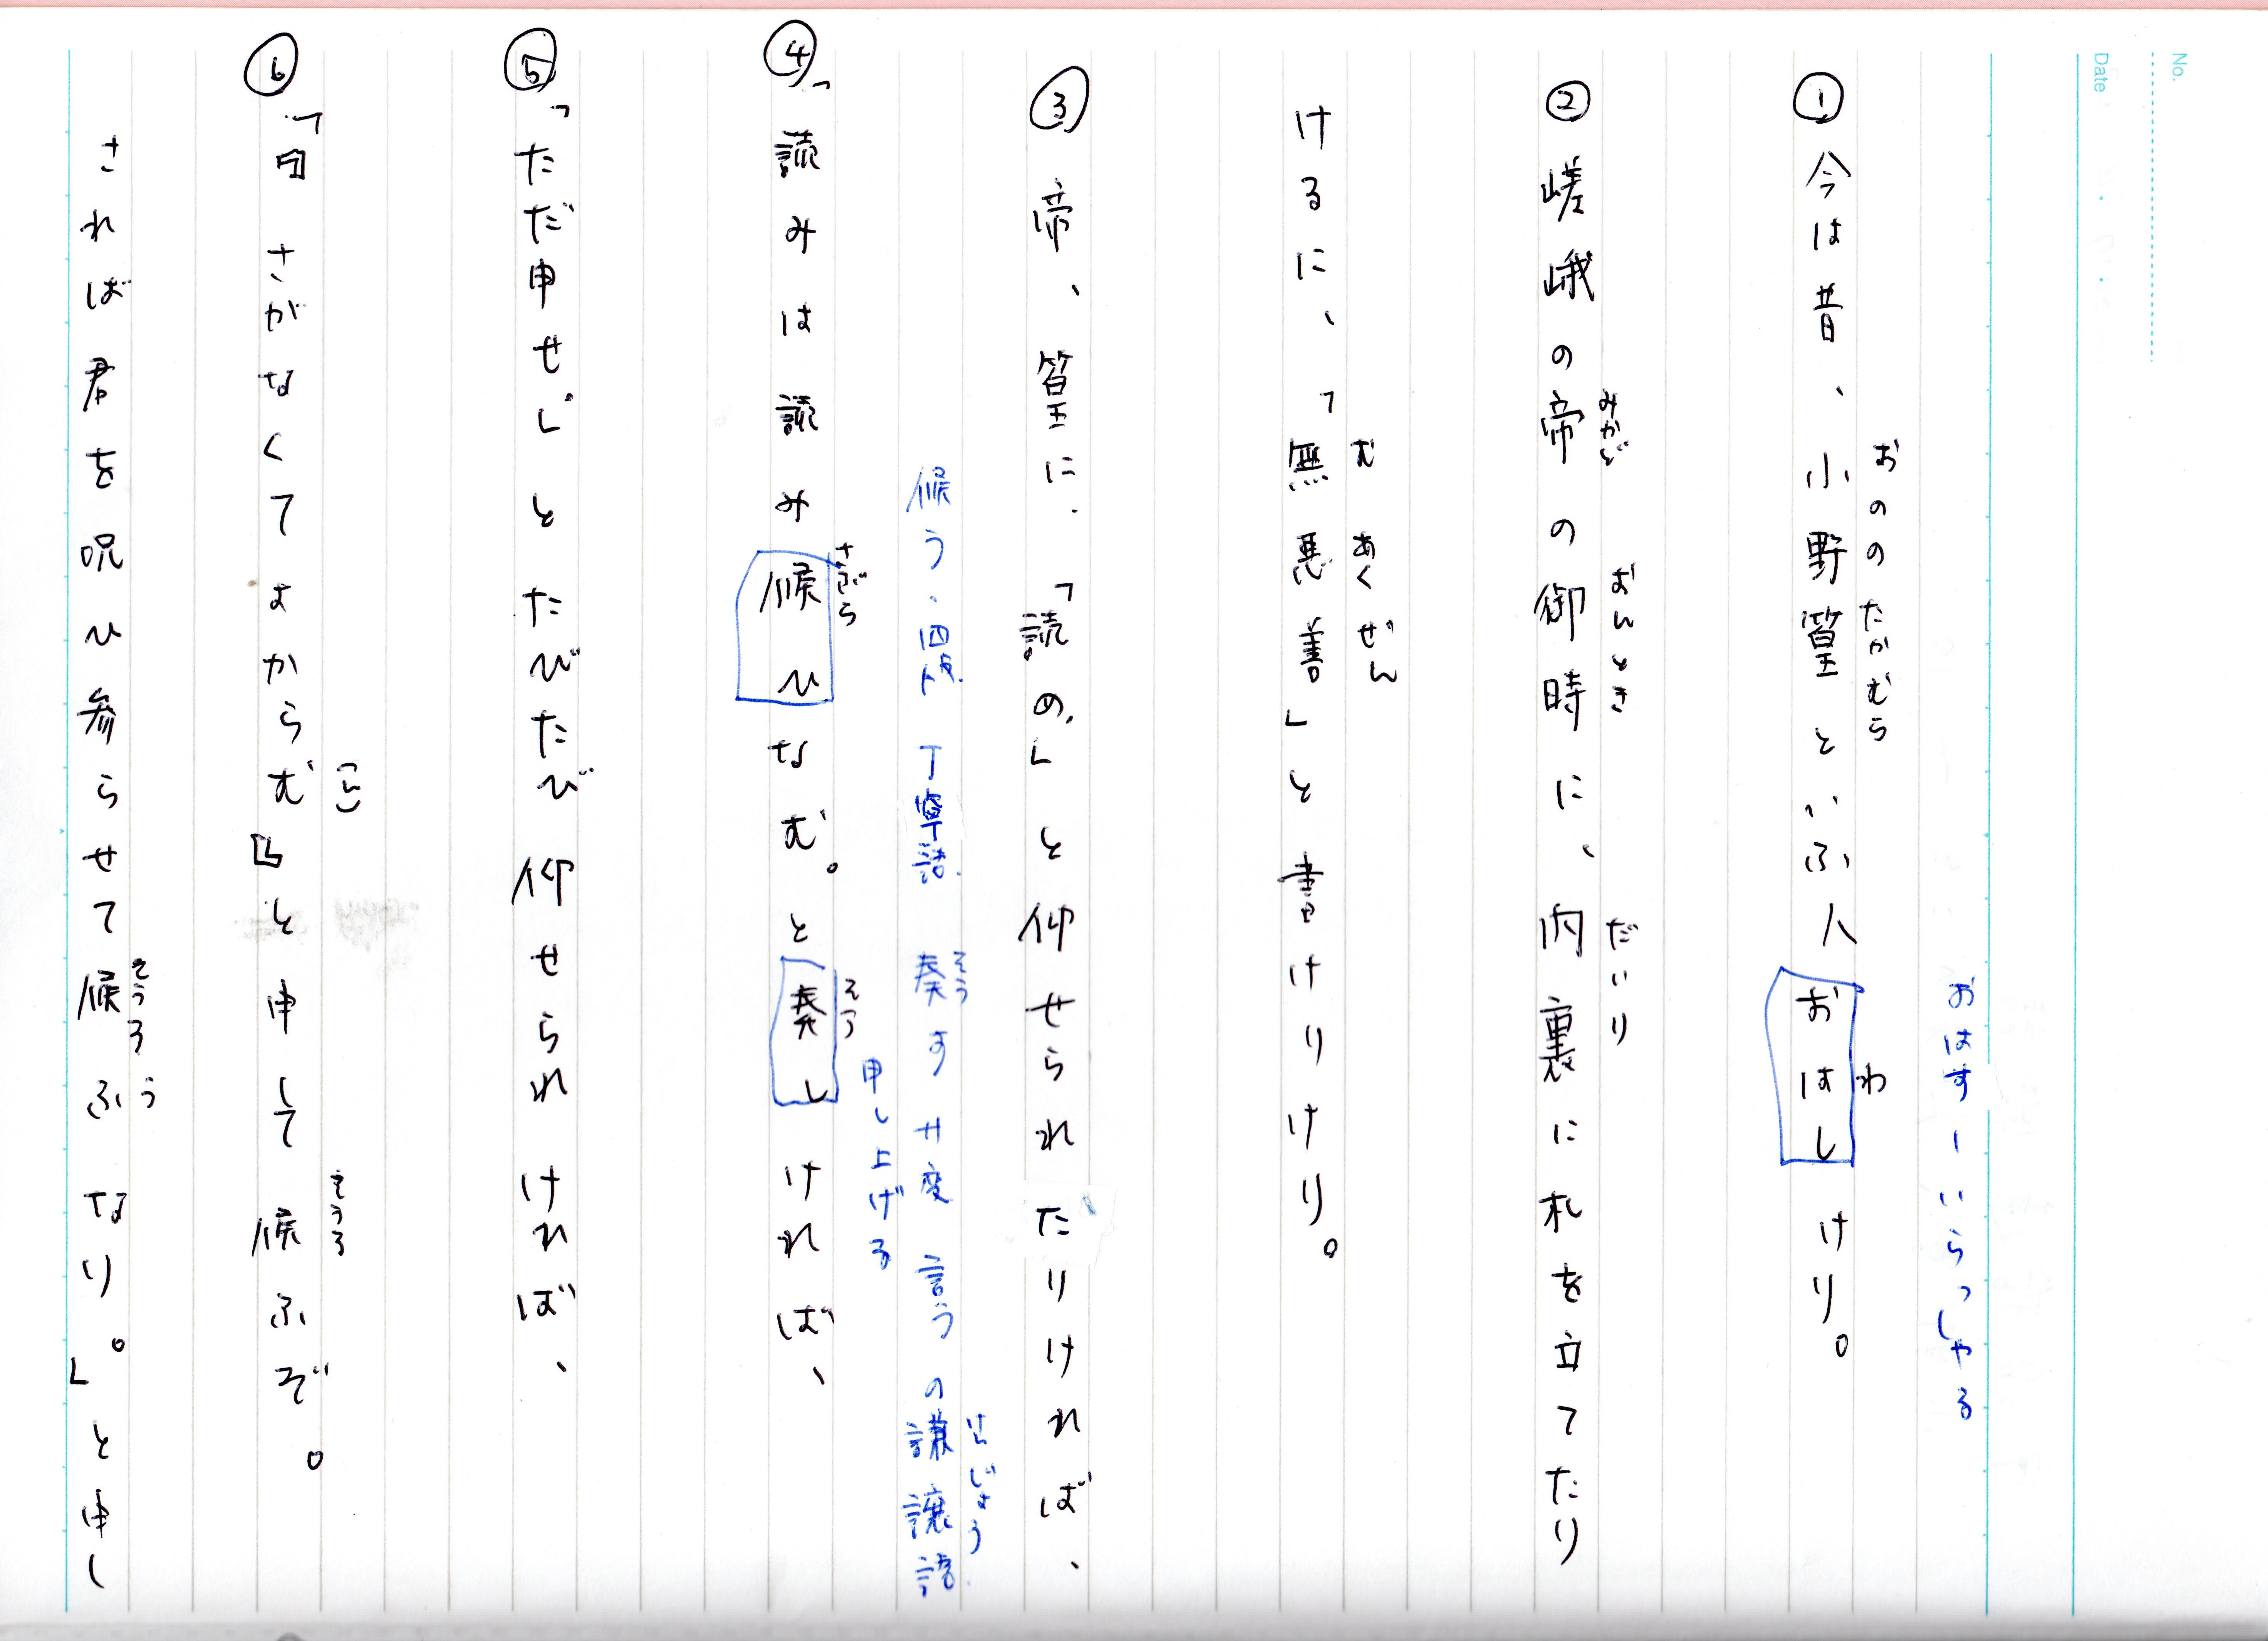 No.
Date
おはすーいらっしゃる
おののたかむら
わ
①今は昔、小野篁といふ人おはしけり。
みかど おんとき だいり
②嵯峨の帝の御時に、内裏に札を立てたり
む あく ぜん
けるに、「無悪善」と書けりけり。
③帝、篁に、「読め」と仰せられたりければ、
けんじょう
そう
候う.四段.丁寧語. 奏す サ変 言うの謙譲語.
申し上げる
さぶら そう
④「読みは読み候ひなむ。と奏しければ、
⑤「ただ申せ」とたびたび仰せられければ、
(ん) そうろ
⑥「『さがなくてよからむ』と申して候ふぞ。
そうろう
されば君を呪ひ参らせて候ふなり。」と申し